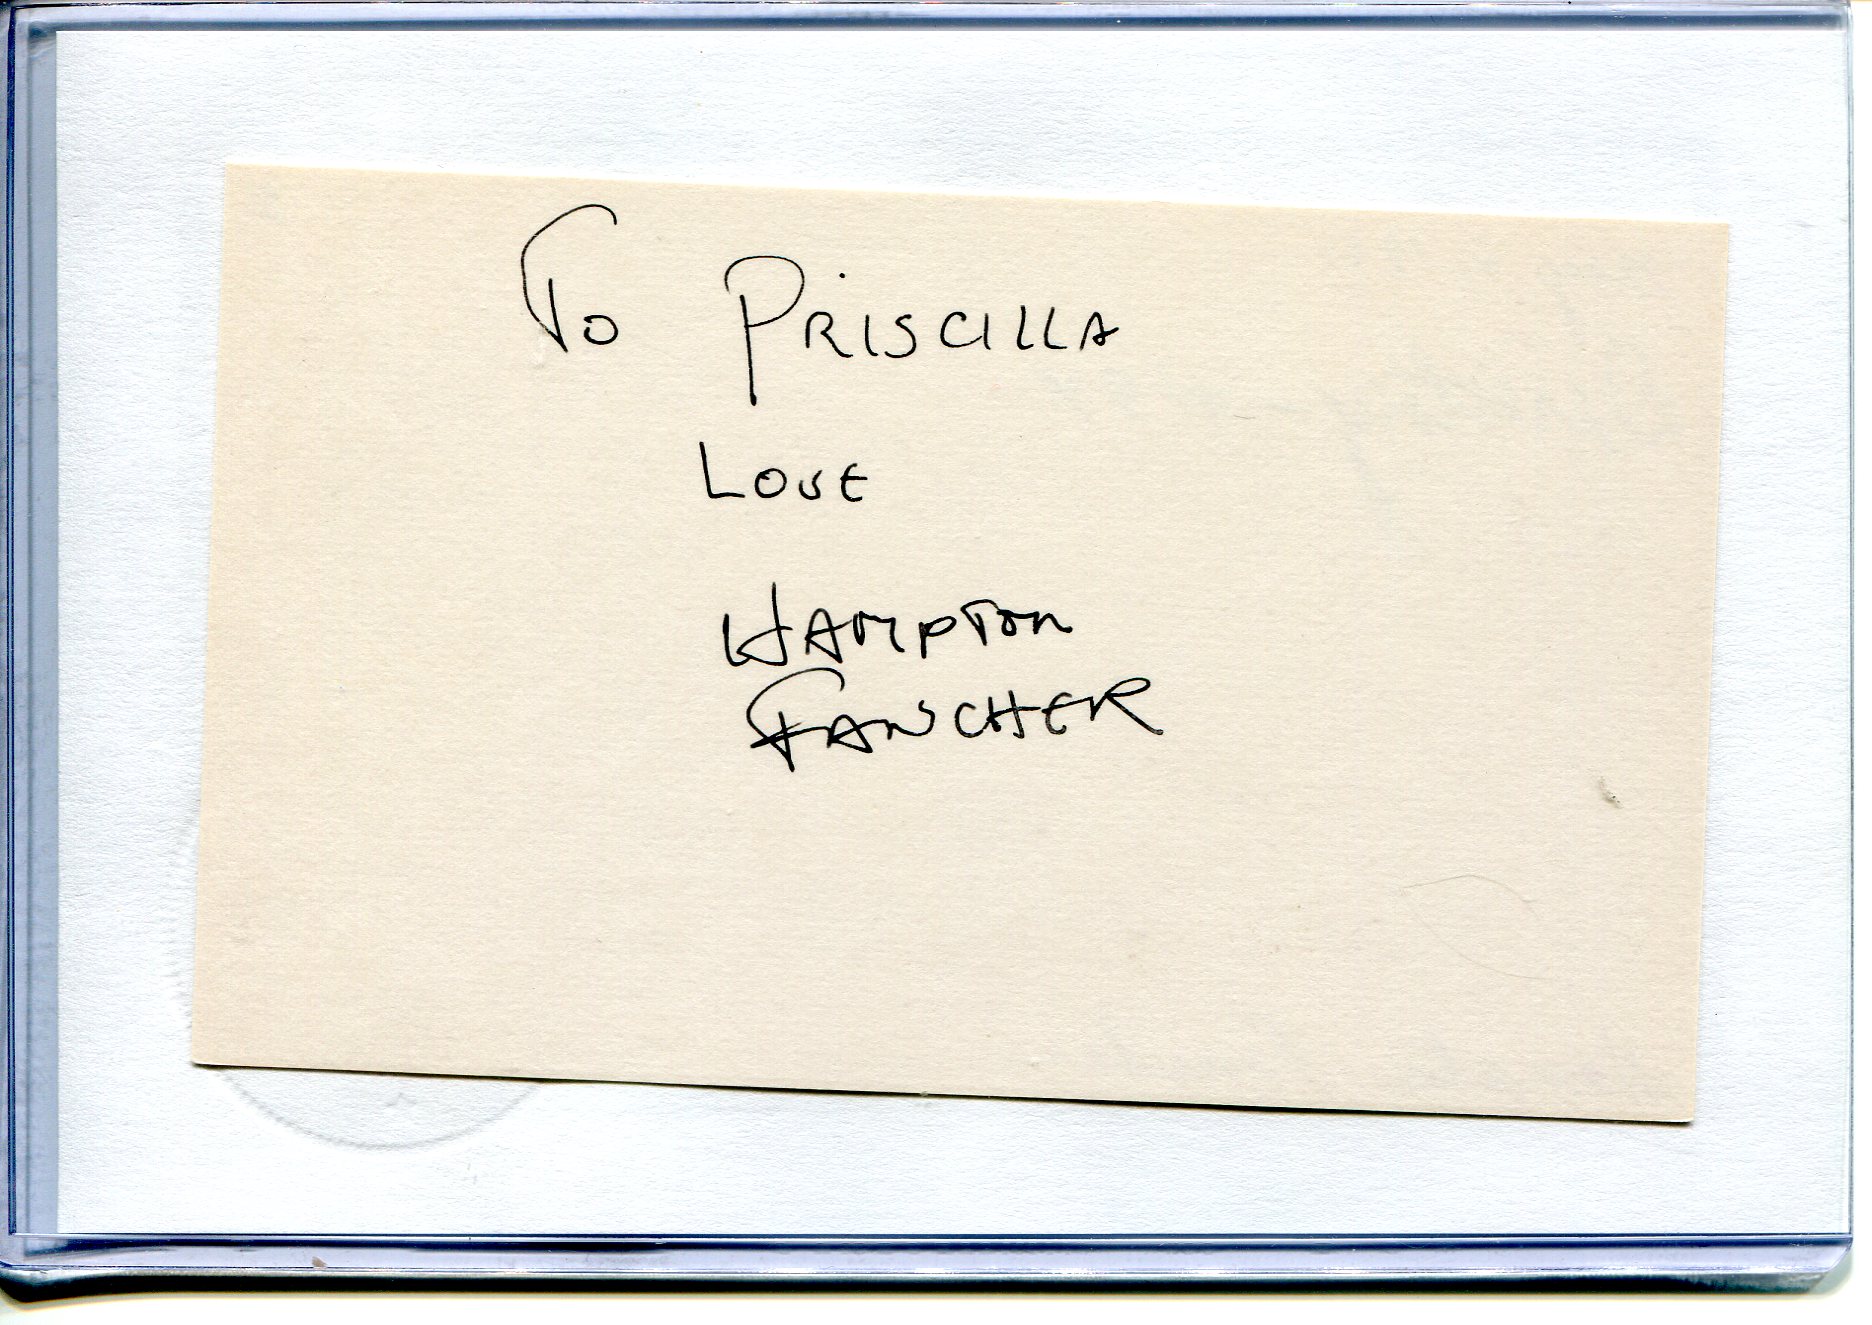 To PRISCILLA
LOVE
HAMPTON
FANCHER